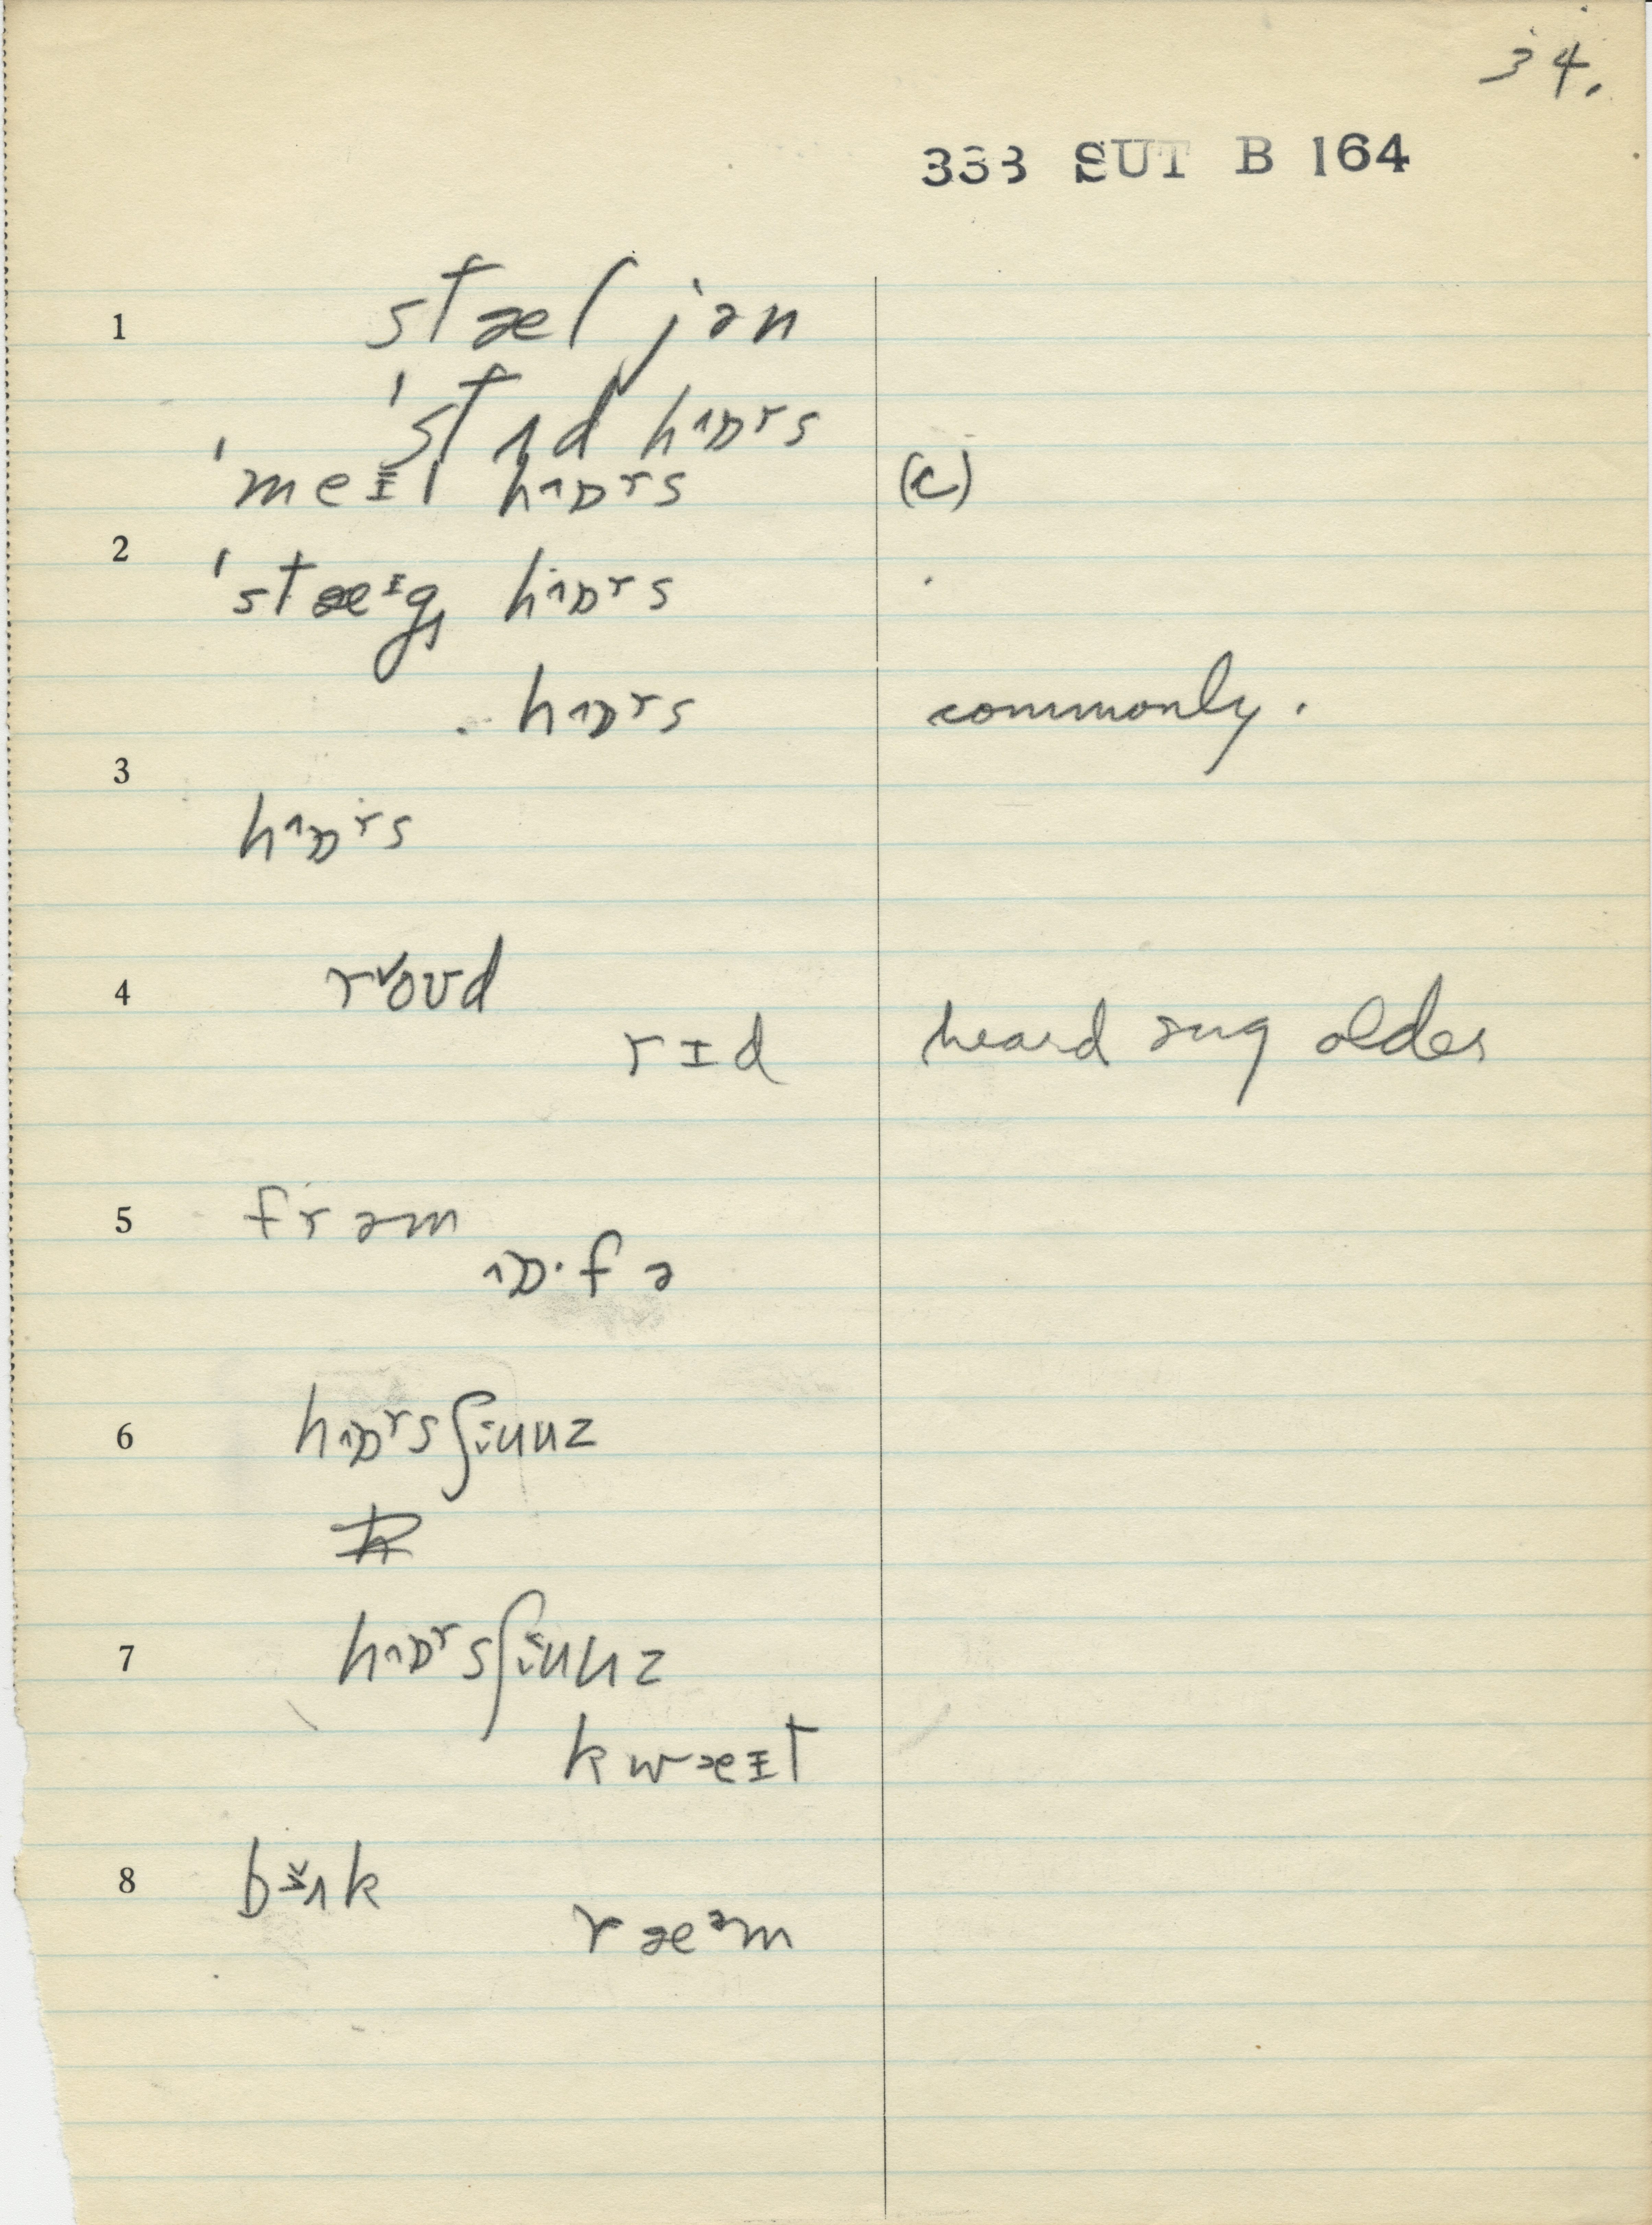 34.
333 SUT B 164
1 stæljən
ˈstʌd hɒrs
ˈmeɪl hɒrs (c)
2 ˈstæɪg hɒrs
hɒrs commonly.
3
hɒrs
4 roʊd
rɪd heard sug older
5 frəm
ɒ·fə
6 hɒrsʃiuuz
7 hɒrsʃiuuz
kwæɪt
8 bʌk
ræəm